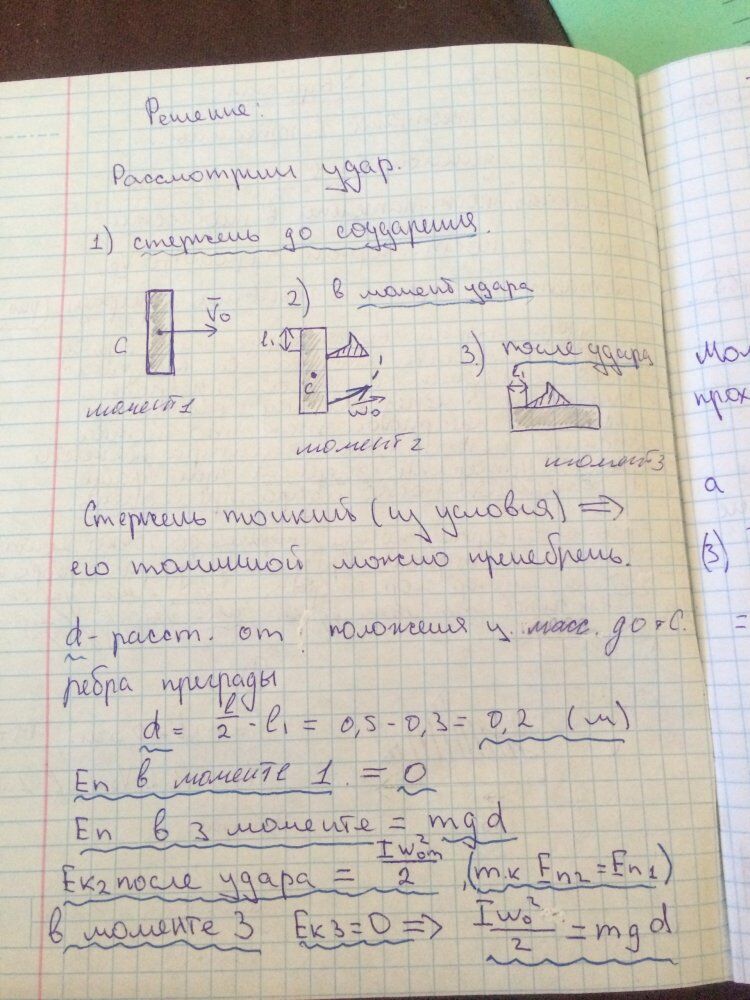 Решение:
Рассмотрим удар.
1) стержень до соударения.
V̅₀
C
момент 1
2) в момент удара
l₁
C
w₀
момент 2
3) после удара
l₁
момент 3
Стержень тонкий (из условия) =>
его толщиной можно пренебречь.
d - расст. от положения ц. масс. до т С.
ребра преграды
d = l/2 - l₁ = 0,5 - 0,3 = 0,2 (м)
Еп в моменте 1. = 0
Еп в 3 моменте = mgd
Ек₂ после удара = Iw₀²/2, (т.к Еп₂ = Еп₁)
в моменте 3 Ек3 = 0 => Iw₀²/2 = mgd
Мол
прох
а
(3)
=